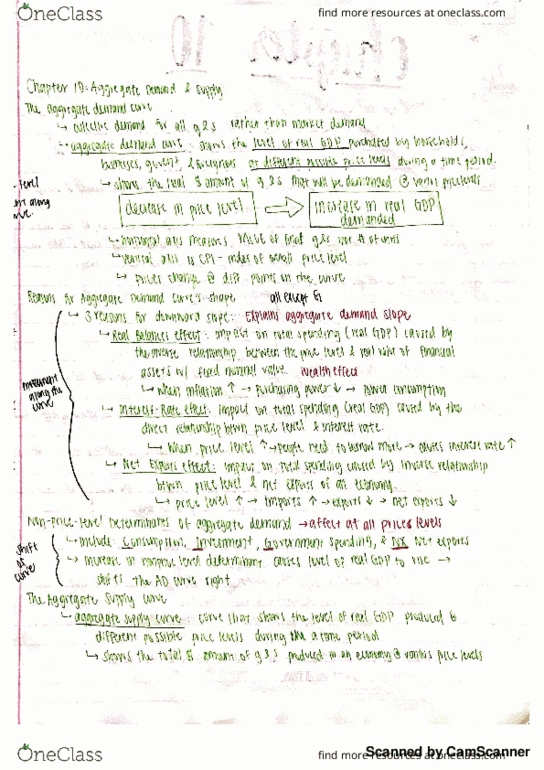 OneClass
find more resources at oneclass.com
Chapter 10
Chapter 10: Aggregate Demand & Supply
The aggregate demand curve
↳ collective demand for all g & s rather than market demand
↳ aggregate demand curve: shows the level of real GDP purchased by households,
businesses, gov't & foreigners at different possible price levels during a time period.
↳ shows the real $ amount of g & s that will be demanded @ various price levels
level
along
decrease in price level
increase in real GDP demanded
↳ horizontal axis measures value of final g & s not # of units
↳ vertical axis is CPI - index of overall price level
↳ prices change @ diff points on the curve
Reasons for Aggregate Demand Curve's shape all except G
↳ 3 reasons for downward slope: Explains aggregate demand slope
↳ Real Balances effect: impact on total spending (real GDP) caused by
the inverse relationship between the price level & real value of financial
assets w/ fixed nominal value. Wealth effect
↳ When inflation ↑ → Purchasing power ↓ → lower consumption
movement along the curve
↳ Interest-Rate effect: impact on total spending (real GDP) caused by the
direct relationship btwn price level & interest rate.
↳ When price level ↑ → people need to borrow more → causes interest rate ↑
↳ Net Exports effect: impact on total spending caused by inverse relationship
btwn price level & net exports of an economy
↳ price level ↑ → imports ↑ → exports ↓ → net exports ↓
Non-Price-level Determinates of aggregate demand → affect at all prices levels
↳ include Consumption, Investment, Government spending, & NX Net exports
shift of curve
↳ increase in nonprice level determinant causes level of real GDP to rise →
shifts the AD curve right
The Aggregate Supply Curve
↳ aggregate supply curve: curve that shows the level of real GDP produced @
different possible price levels during the a time period
↳ shows the total $ amount of g & s produced in an economy @ various price levels
OneClass
find more resources at oneclass.com
Scanned by CamScanner